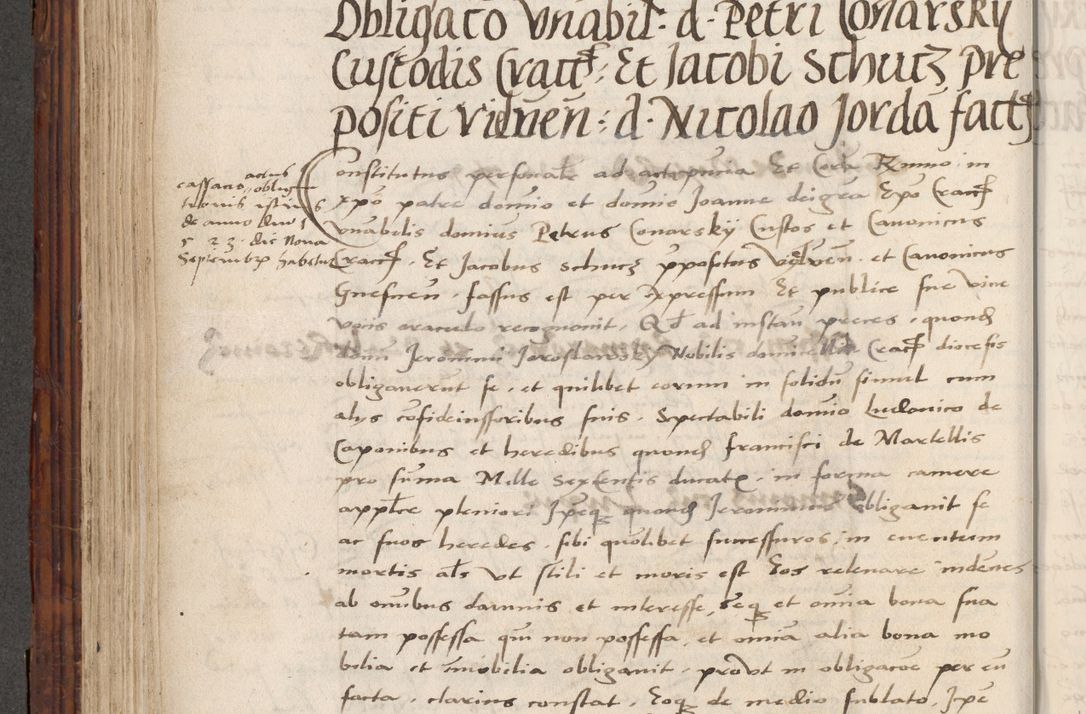 Obligaco vnabil: d. Petri Conarsky
Custodis Cracc: Et Jacobi Schucz pre
positi vidnen: d. Nicolao Jorda fact
actus
cassatus obliga
tionis
de anno dni 1
5 23. die Nona
Septembr habetur
Constitutus personalr ad acta Et Cora Rmmo in
xpo patre domio et domio Joanne deigra Epo Cracc
vnabilis domius Petrus Conarsky Custos et Canonicus
Cracc. Et Jacobus Schucz ppositus vidnen. et Canonicus
Gnesnen. fassus est per expressum Et publice sue vine
vocis oraculo recognouit. Qd ad instan preces. quond
domi Jeronimi Jaroslawsky Nobilis Cracc diocesis
obligauerut se. et quilibet eorum in solidu simul cum
alys cofideiussoribus suis. Spectabili domio Ludouico de
Caponibus et heredibus quond francisci de Martellis
pro suma Mille Sexcentis ducatx. in forma camere
applce pleniori Ipeq quond Jeronimus obligauit se
ac suos heredes. sibi quolibet successuros, in euentum
mortis als vt stili et moris est Eos releuare indenes
ab omibus damnis et interesse, Seq et omia bona sua
tam possessa qui non possessa, et omia alia bona mo
bilia et imobilia obligauit. provt in obligacoe per eu
facta. clarius constat. Eoq de medio sublato, Ipe